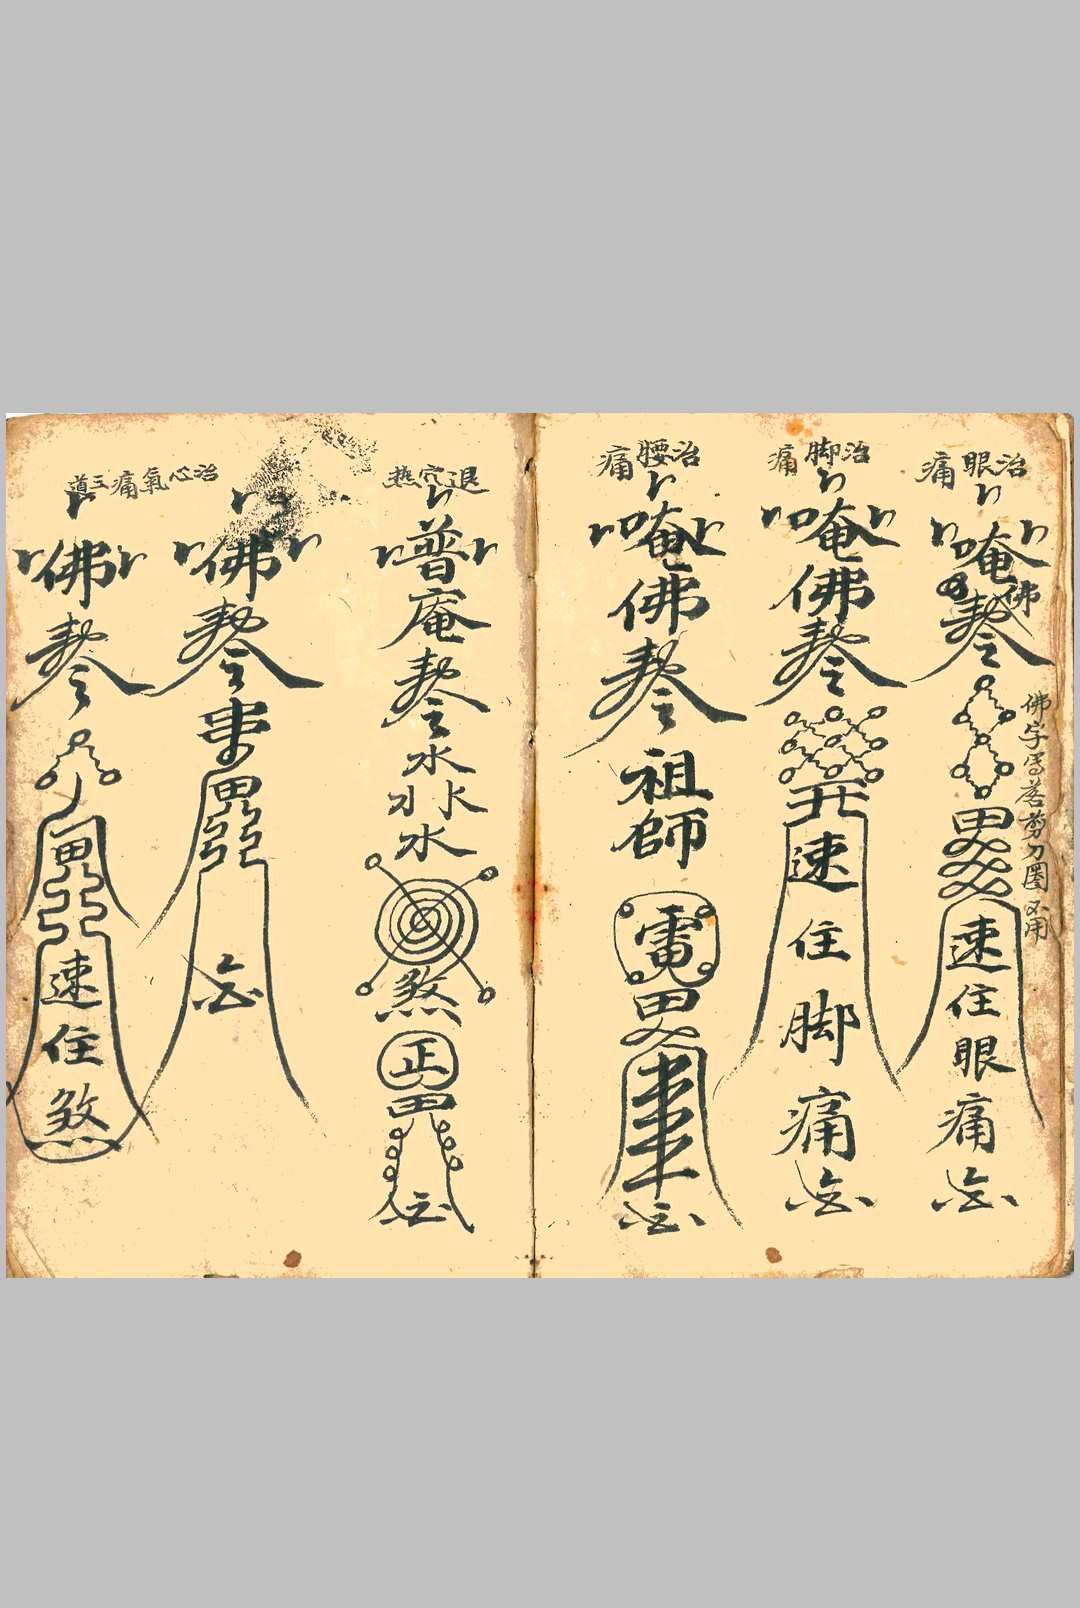 治眼痛
唵佛勅令
速住眼痛
佛字寫落剪刀圈不用
治脚痛
唵佛勅令
速住脚痛
治腰痛
唵佛勅令祖師
電
退熱
普庵勅令水水水水
煞正
治心氣痛三道
佛勅令
佛勅令
速住煞